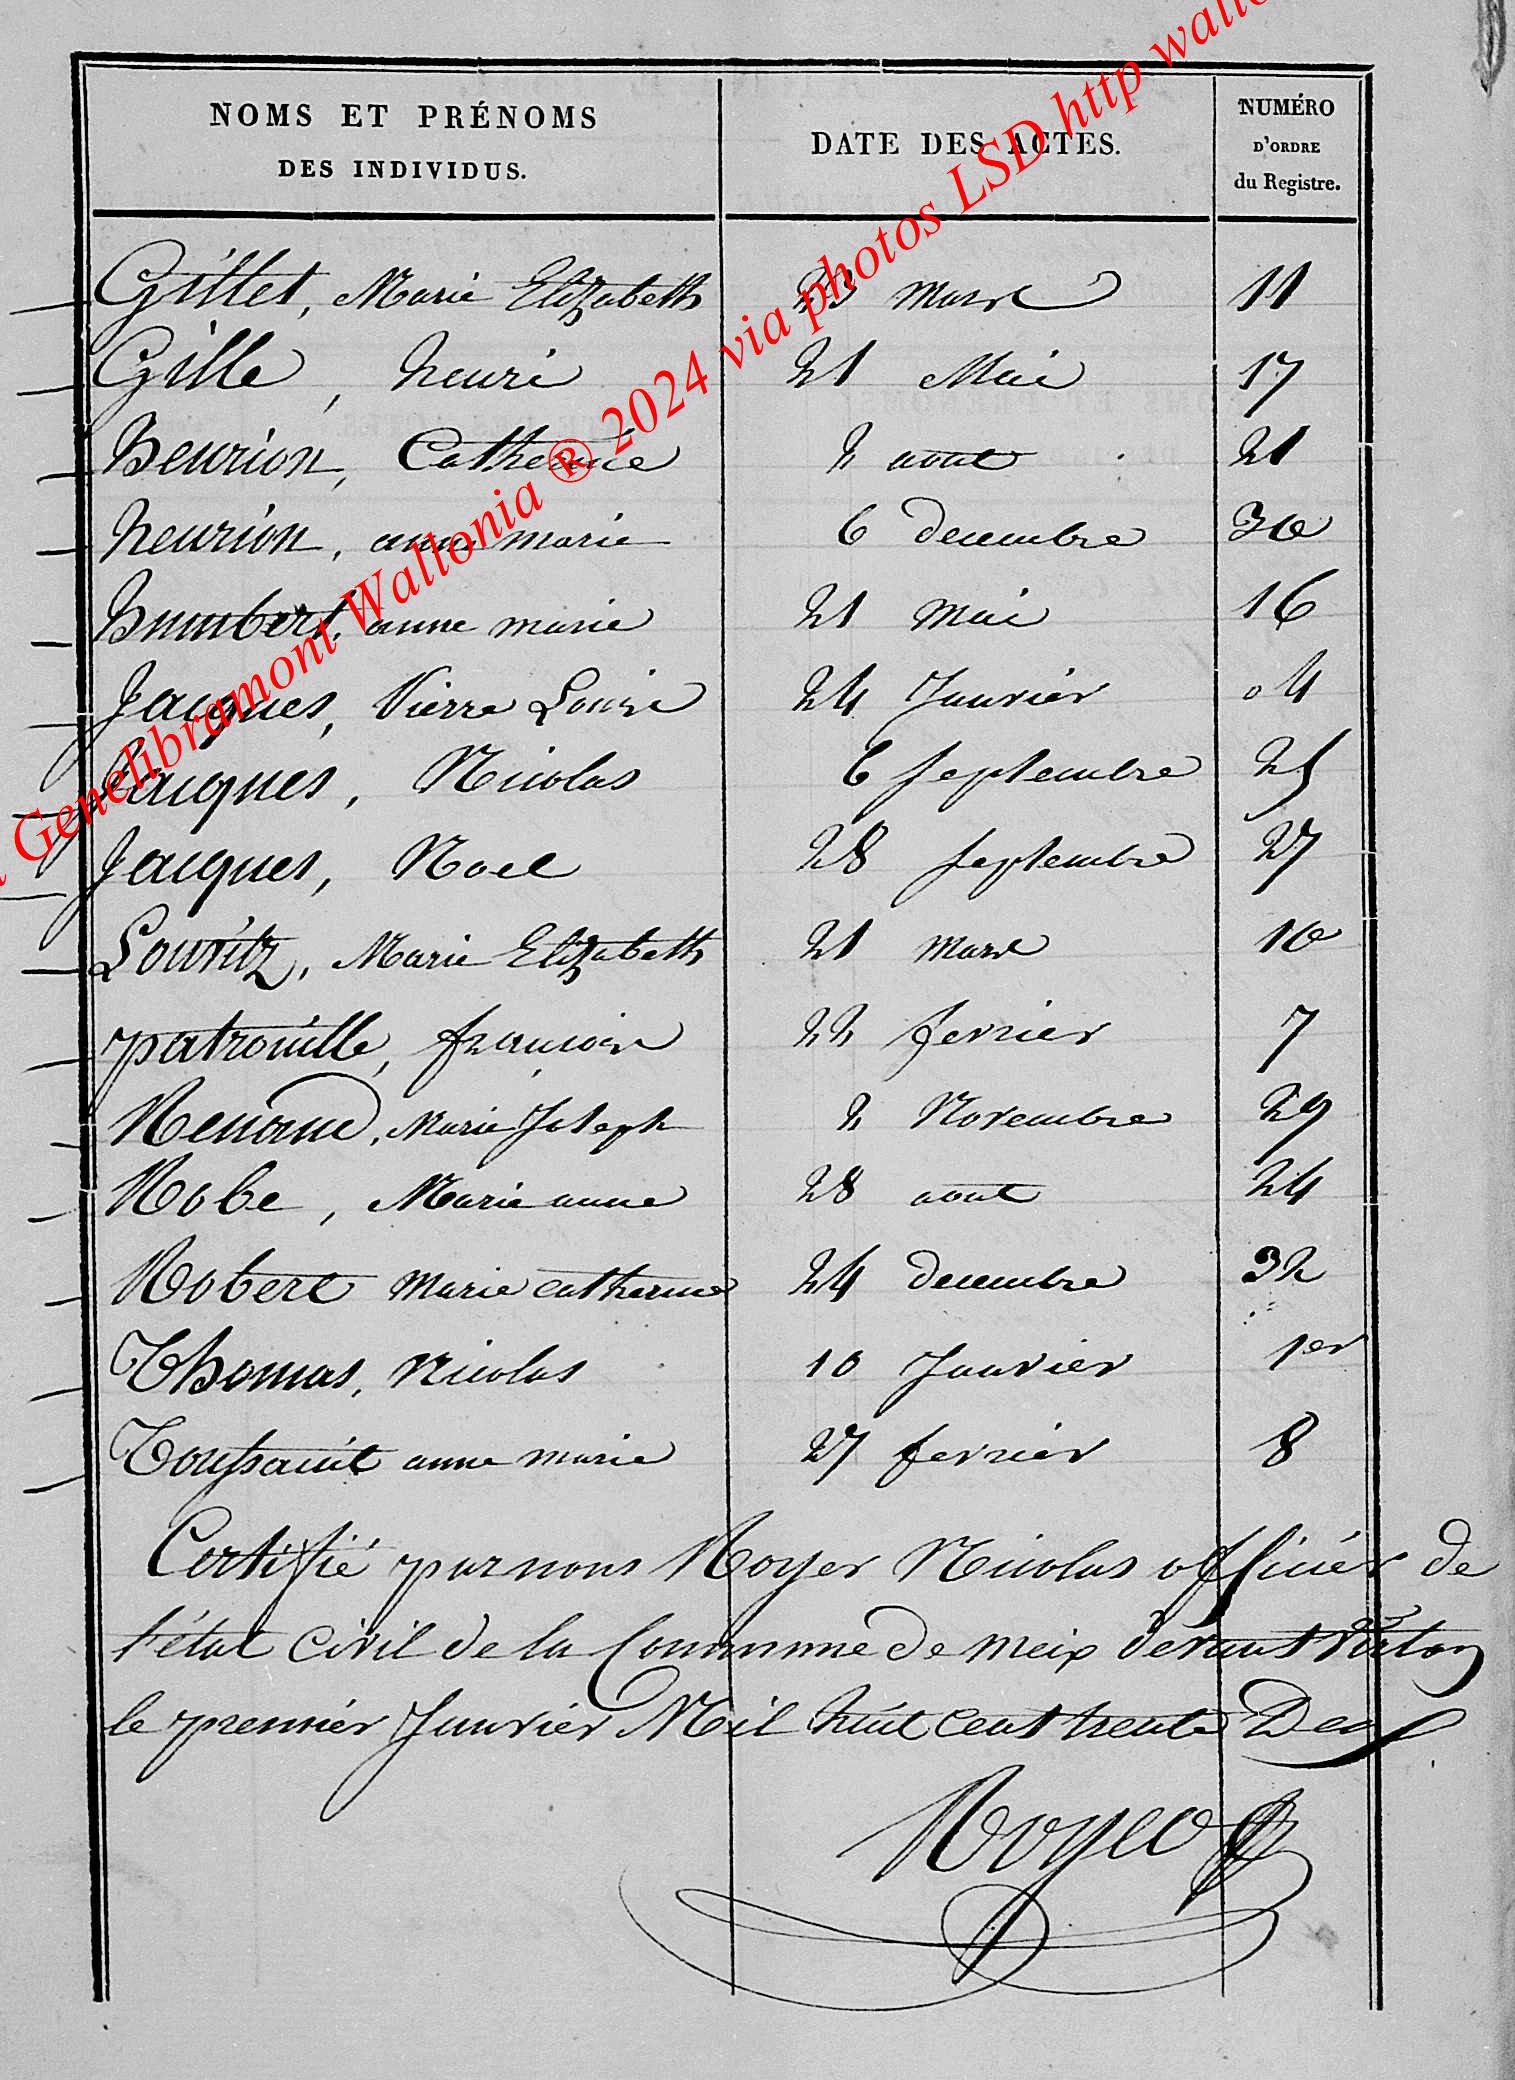 NOMS ET PRÉNOMS
DES INDIVIDUS.
DATE DES ACTES.
NUMÉRO
D'ORDRE
du Registre.
Gillet, Marie Elizabeth 23 mars 11
Gille, henri 21 Mai 17
henrion, Catherine 2 aout 21
henrion, anne marie 6 decembre 30
humbert, anne marie 21 mai 16
Jacques, Pierre Louis 24 Janvier 4
Jacques, Nicolas 6 septembre 25
Jacques, Noel 28 septembre 27
Lowritz, Marie Elizabeth 21 mars 10
patrouille, françois 22 fevrier 7
Renaud, Marie Joseph 2 Novembre 29
Robe, Marie anne 28 aout 24
Robert marie catherine 24 decembre 32
Thomas, nicolas 10 Janvier 1er
Toussaint anne marie 27 fevrier 8
Certifié par nous Royer Nicolas officier de
l'état civil de la Commune de meix devant virton
le premier Janvier Mil huit cent trente Deux
Royer
Genelibramont Wallonia ® 2024 via photos LSD http